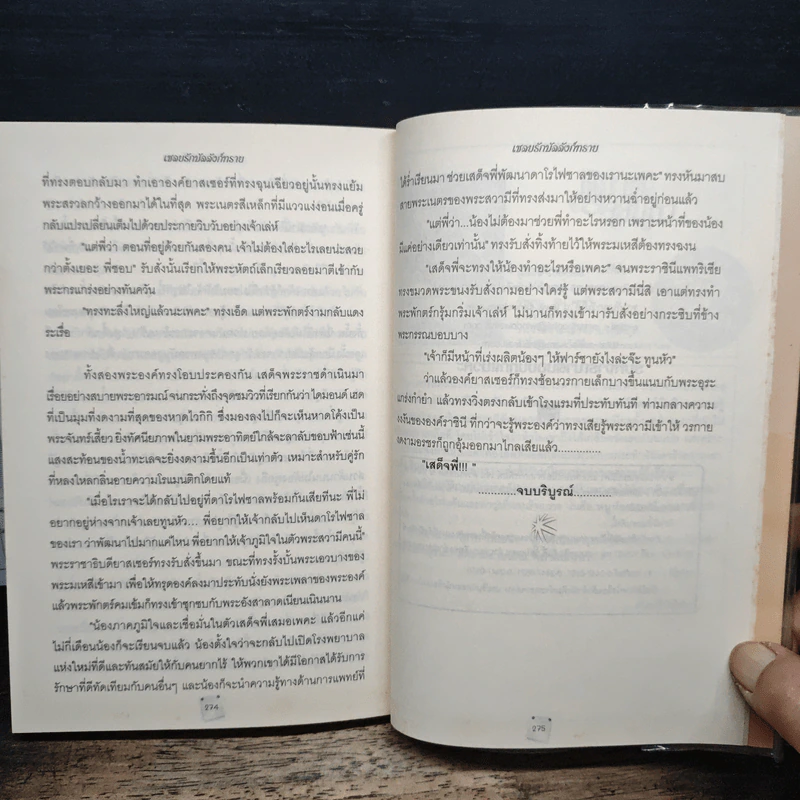 เชลยรักบัลลังก์ทราย
ที่ทรงตอบกลับมา ทำเอาองค์ยาสเซอร์ที่ทรงฉุนเฉียวอยู่นั้นทรงแย้ม
พระสรวลกว้างออกมาได้ในที่สุด พระเนตรสีเหล็กที่มีแววแง่งอนเมื่อครู่
กลับแปรเปลี่ยนเต็มไปด้วยประกายวิบวับอย่างเจ้าเล่ห์
"แต่พี่ว่า ตอนที่อยู่ด้วยกันสองคน เจ้าไม่ต้องใส่อะไรเลยน่ะสวย
กว่าตั้งเยอะ พี่ชอบ" รับสั่งนั้นเรียกให้พระหัตถ์เล็กเรียวลอยมาตีเข้ากับ
พระกรแกร่งอย่างทันควัน
"ทรงทะลึ่งใหญ่แล้วนะเพคะ" ทรงเอ็ด แต่พระพักตร์งามกลับแดง
ระเรื่อ
ทั้งสองพระองค์ทรงโอบประคองกัน เสด็จพระราชดำเนินมา
เรื่อยอย่างสบายพระอารมณ์ จนกระทั่งถึงจุดชมวิวที่เรียกกันว่า ไดมอนด์ เฮด
ที่เป็นมุมที่งดงามที่สุดของหาดไวกิกิ ซึ่งมองลงไปก็จะเห็นหาดโค้งเป็น
พระจันทร์เสี้ยว ยิ่งทัศนียภาพในยามพระอาทิตย์ใกล้จะลาลับขอบฟ้าเช่นนี้
แสงสะท้อนของน้ำทะเลจะยิ่งงดงามขึ้นอีกเป็นเท่าตัว เหมาะสำหรับคู่รัก
ที่หลงใหลกลิ่นอายความโรแมนติกโดยแท้
"เมื่อไรเราจะได้กลับไปอยู่ที่ดาโรไฟซาลพร้อมกันเสียทีนะ พี่ไม่
อยากอยู่ห่างจากเจ้าเลยทูนหัว... พี่อยากให้เจ้ากลับไปเห็นดาโรไฟซาล
ของเรา ว่าพัฒนาไปมากแค่ไหน พี่อยากให้เจ้าภูมิใจในตัวพระสวามีคนนี้"
พระราชาธิบดียาสเซอร์ทรงรับสั่งขึ้นมา ขณะที่ทรงรั้งบั้นพระเอวบางของ
พระมเหสีเข้ามา เพื่อให้ทรุดองค์ลงมาประทับนั่งยังพระเพลาของพระองค์
แล้วพระพักตร์คมเข้มก็ทรงเข้าซุกซบกับพระอังสาลาดเนียนเนินนาน
"น้องภาคภูมิใจและเชื่อมั่นในตัวเสด็จพี่เสมอเพคะ แล้วอีกแค่
ไม่กี่เดือนน้องก็จะเรียนจบแล้ว น้องตั้งใจว่าจะกลับไปเปิดโรงพยาบาล
แห่งใหม่ที่ดีและทันสมัยให้กับคนยากไร้ ให้พวกเขาได้มีโอกาสได้รับการ
รักษาที่ดีทัดเทียมกับคนอื่นๆ และน้องก็จะนำความรู้ทางด้านการแพทย์ที่
274
เชลยรักบัลลังก์ทราย
ได้ร่ำเรียนมา ช่วยเสด็จพี่พัฒนาดาโรไฟซาลของเรานะเพคะ" ทรงหันมาสบ
สายพระเนตรของพระสวามีที่ทรงส่งมาให้อย่างหวานฉ่ำอยู่ก่อนแล้ว
"แต่พี่ว่า...น้องไม่ต้องมาช่วยพี่ทำอะไรหรอก เพราะหน้าที่ของน้อง
มีแค่อย่างเดียวเท่านั้น" ทรงรับสั่งทิ้งท้ายไว้ให้พระมเหสีต้องทรงฉงน
"เสด็จพี่จะทรงให้น้องทำอะไรหรือเพคะ" จนพระราชินีแพทริเซีย
ทรงขมวดพระขนงรับสั่งถามอย่างใคร่รู้ แต่พระสวามีนี่สิ เอาแต่ทรงทำ
พระพักตร์กรุ้มกริ่มเจ้าเล่ห์ ไม่นานก็ทรงเข้ามารับสั่งอย่างกระซิบที่ข้าง
พระกรรณบอบบาง
"เจ้าก็มีหน้าที่เร่งผลิตน้องๆ ให้ฟาร์ซายังไงล่ะจ๊ะ ทูนหัว"
ว่าแล้วองค์ยาสเซอร์ก็ทรงช้อนวรกายเล็กบางขึ้นแนบกับพระอุระ
แกร่งกำยำ แล้วทรงวิ่งตรงกลับเข้าโรงแรมที่ประทับทันที ท่ามกลางความ
งงงันขององค์ราชินี ที่กว่าจะรู้พระองค์ว่าทรงเสียรู้พระสวามีเข้าให้ วรกาย
งดงามอรชรก็ถูกอุ้มออกมาไกลเสียแล้ว.............
"เสด็จพี่!!! "
............จบบริบูรณ์............
275